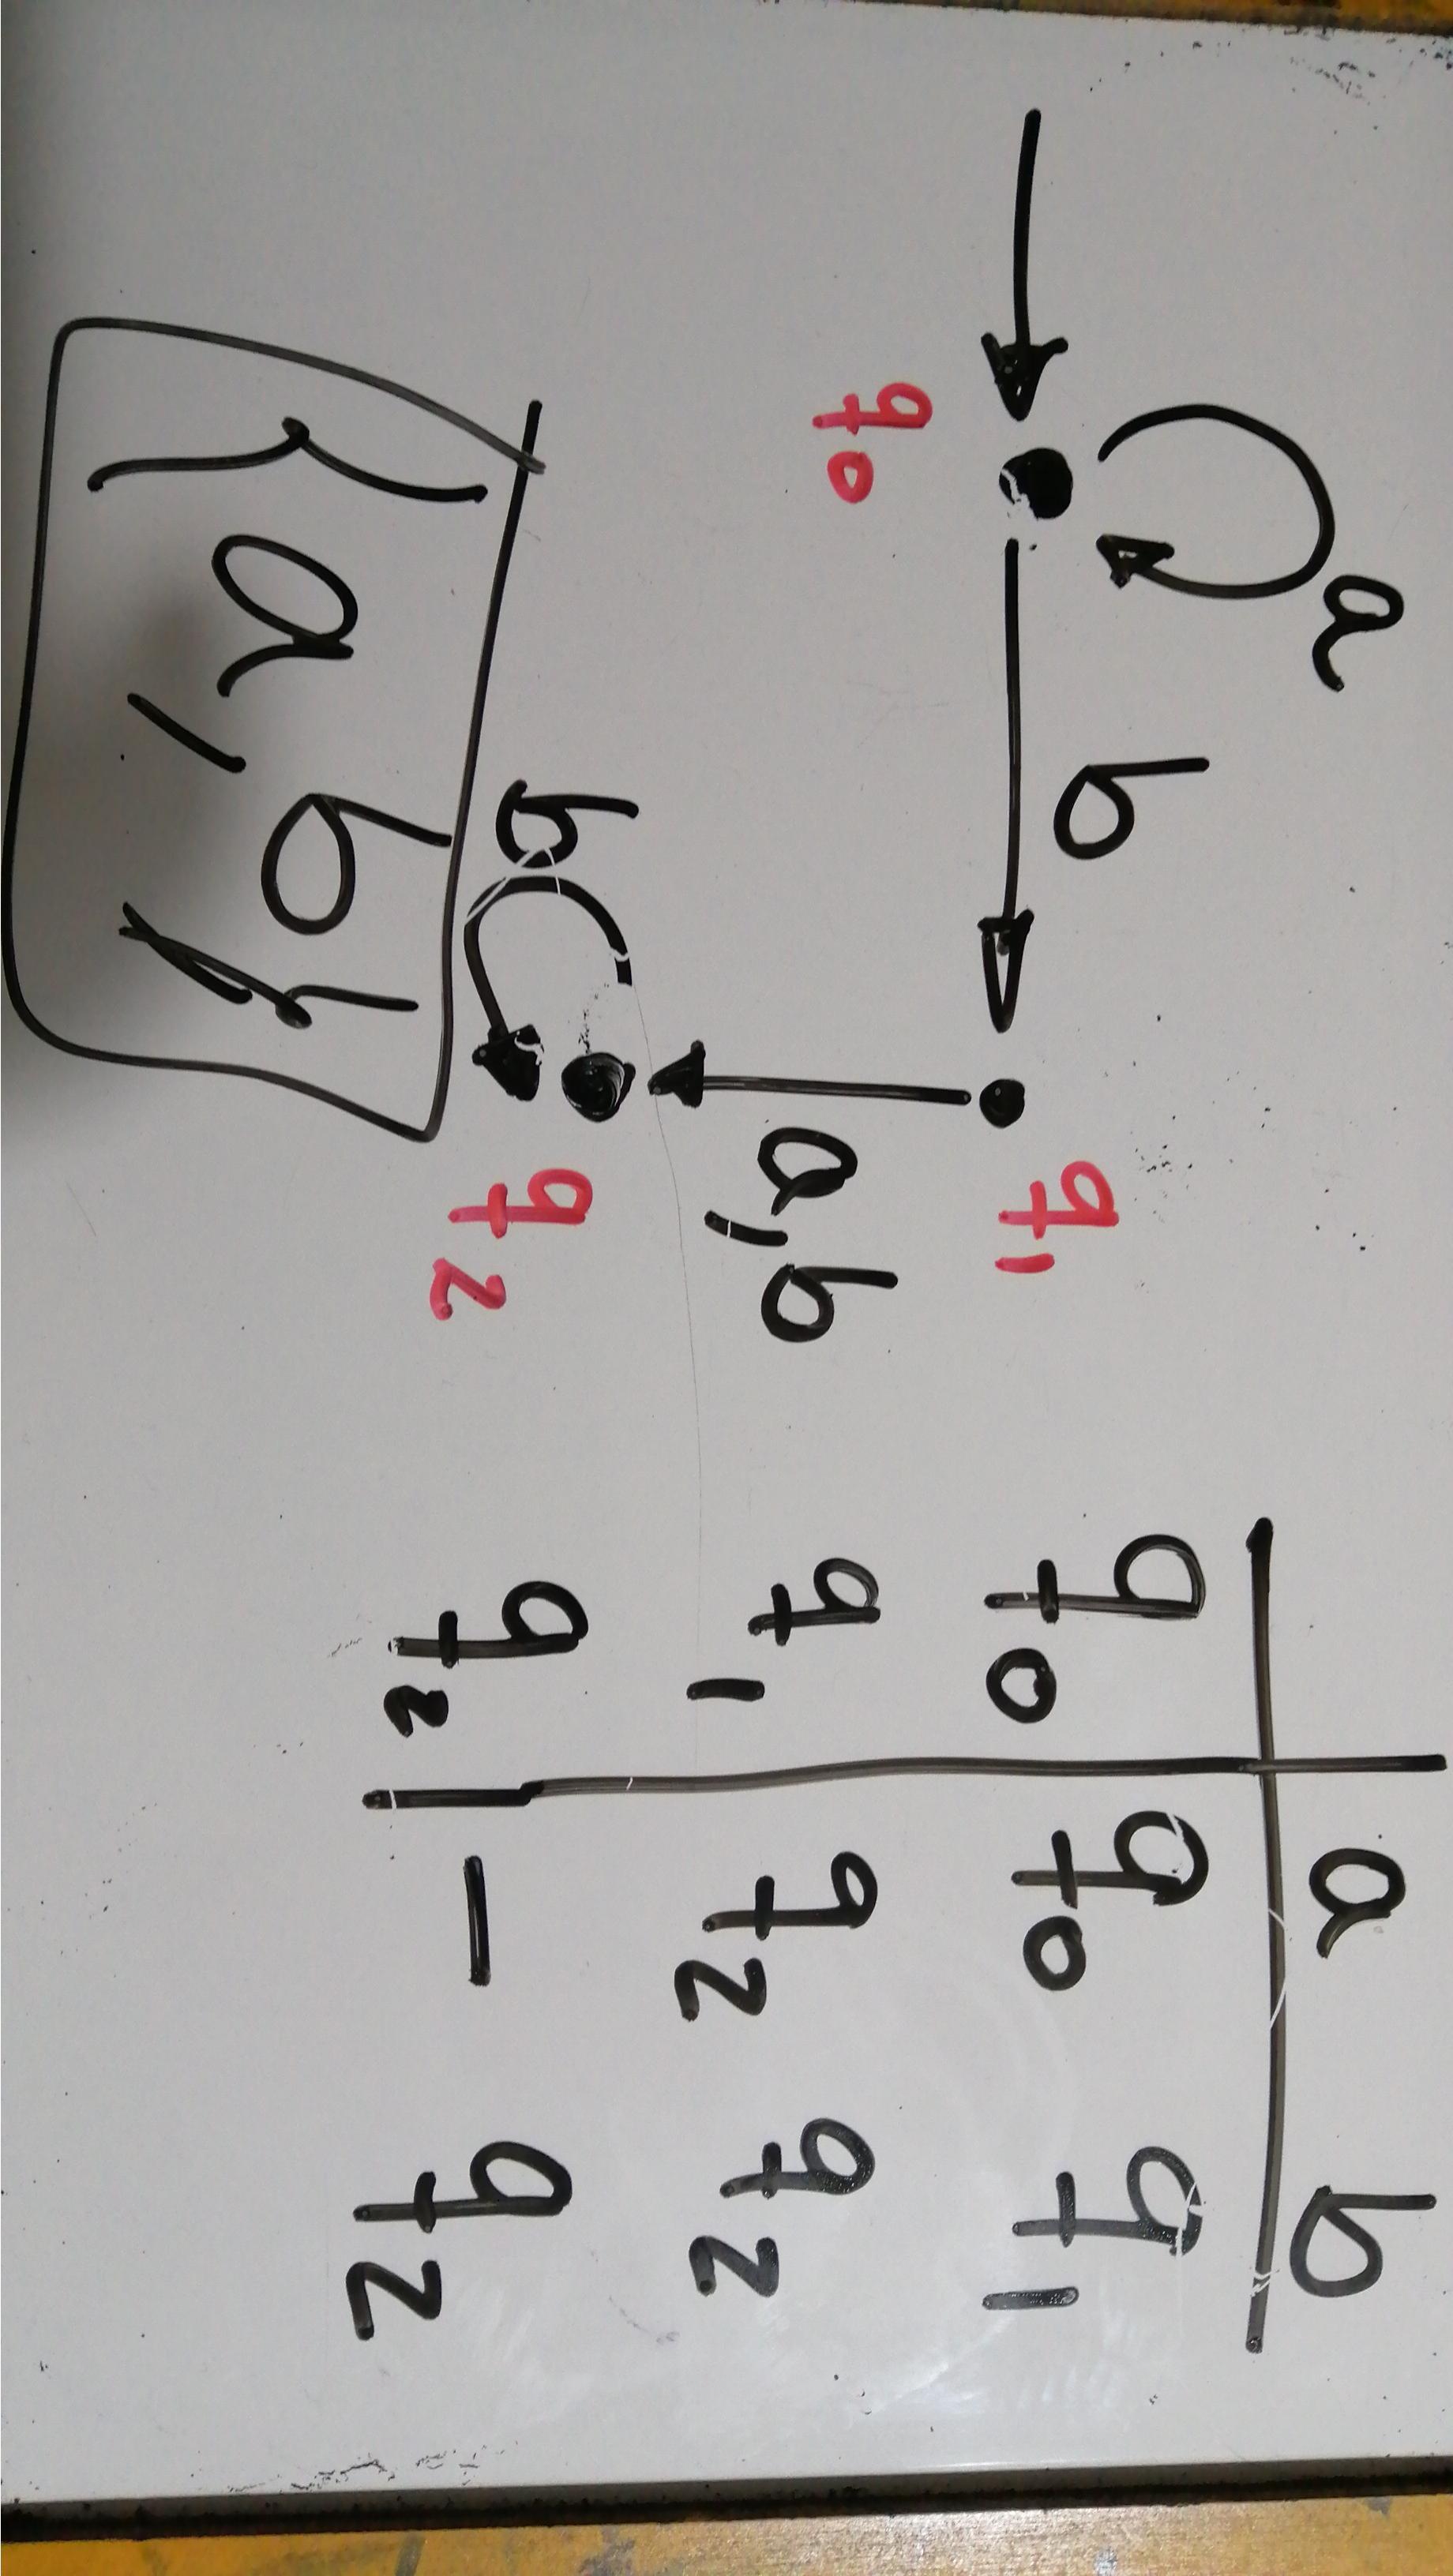 a
b
q0
q1
a,b
b
q2
{a,b}
a b
q0 q0 q1
q1 q2 q2
q2 — q2